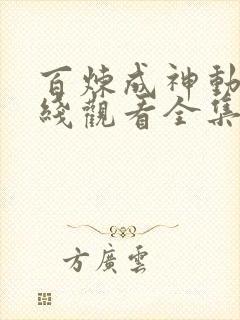 百炼成神動
綫觀看全集
方廣雲